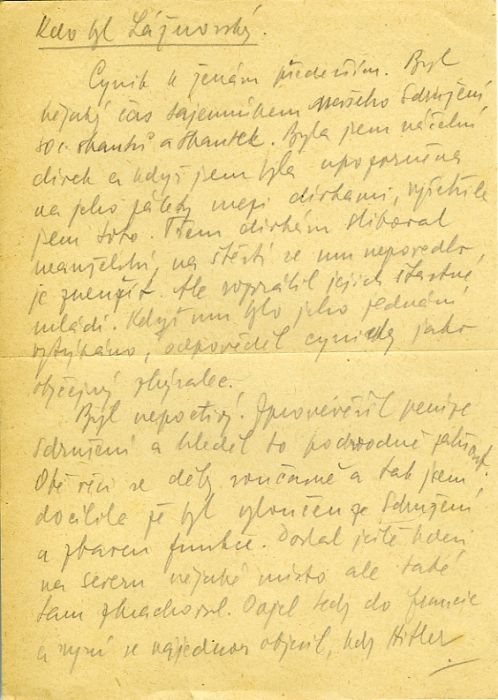 Kdo byl Lážnovský.
Cynik k ženám především. Byl
nějaký čas tajemníkem našeho Sdružení
soc. skautů a skautek. Byla jsem náčelní
dívek a když jsem byla upozorněna
na jeho pletky mezi dívkami, vyšetřila
jsem toto. Třem dívkám sliboval
manželství, na štěstí se mu nepovedlo
je zneužít. Ale rozvrátil jejich šťastné
mládí. Když mu bylo jeho jednání
vytýkáno, odpověděl cynicky jako
obyčejný zhýralec.
Byl nepoctivý. Zpronevěřil peníze
Sdružení a hleděl to podvodně
Obě věci se děly současně a tak jsem
docílila že byl vyloučen ze Sdružení
a zbaven funkce. Dostal ještě kdesi
na severu nějaké místo ale také
tam Odjel tedy do Francie
a nyní se najednou objevil, kdy Hitler